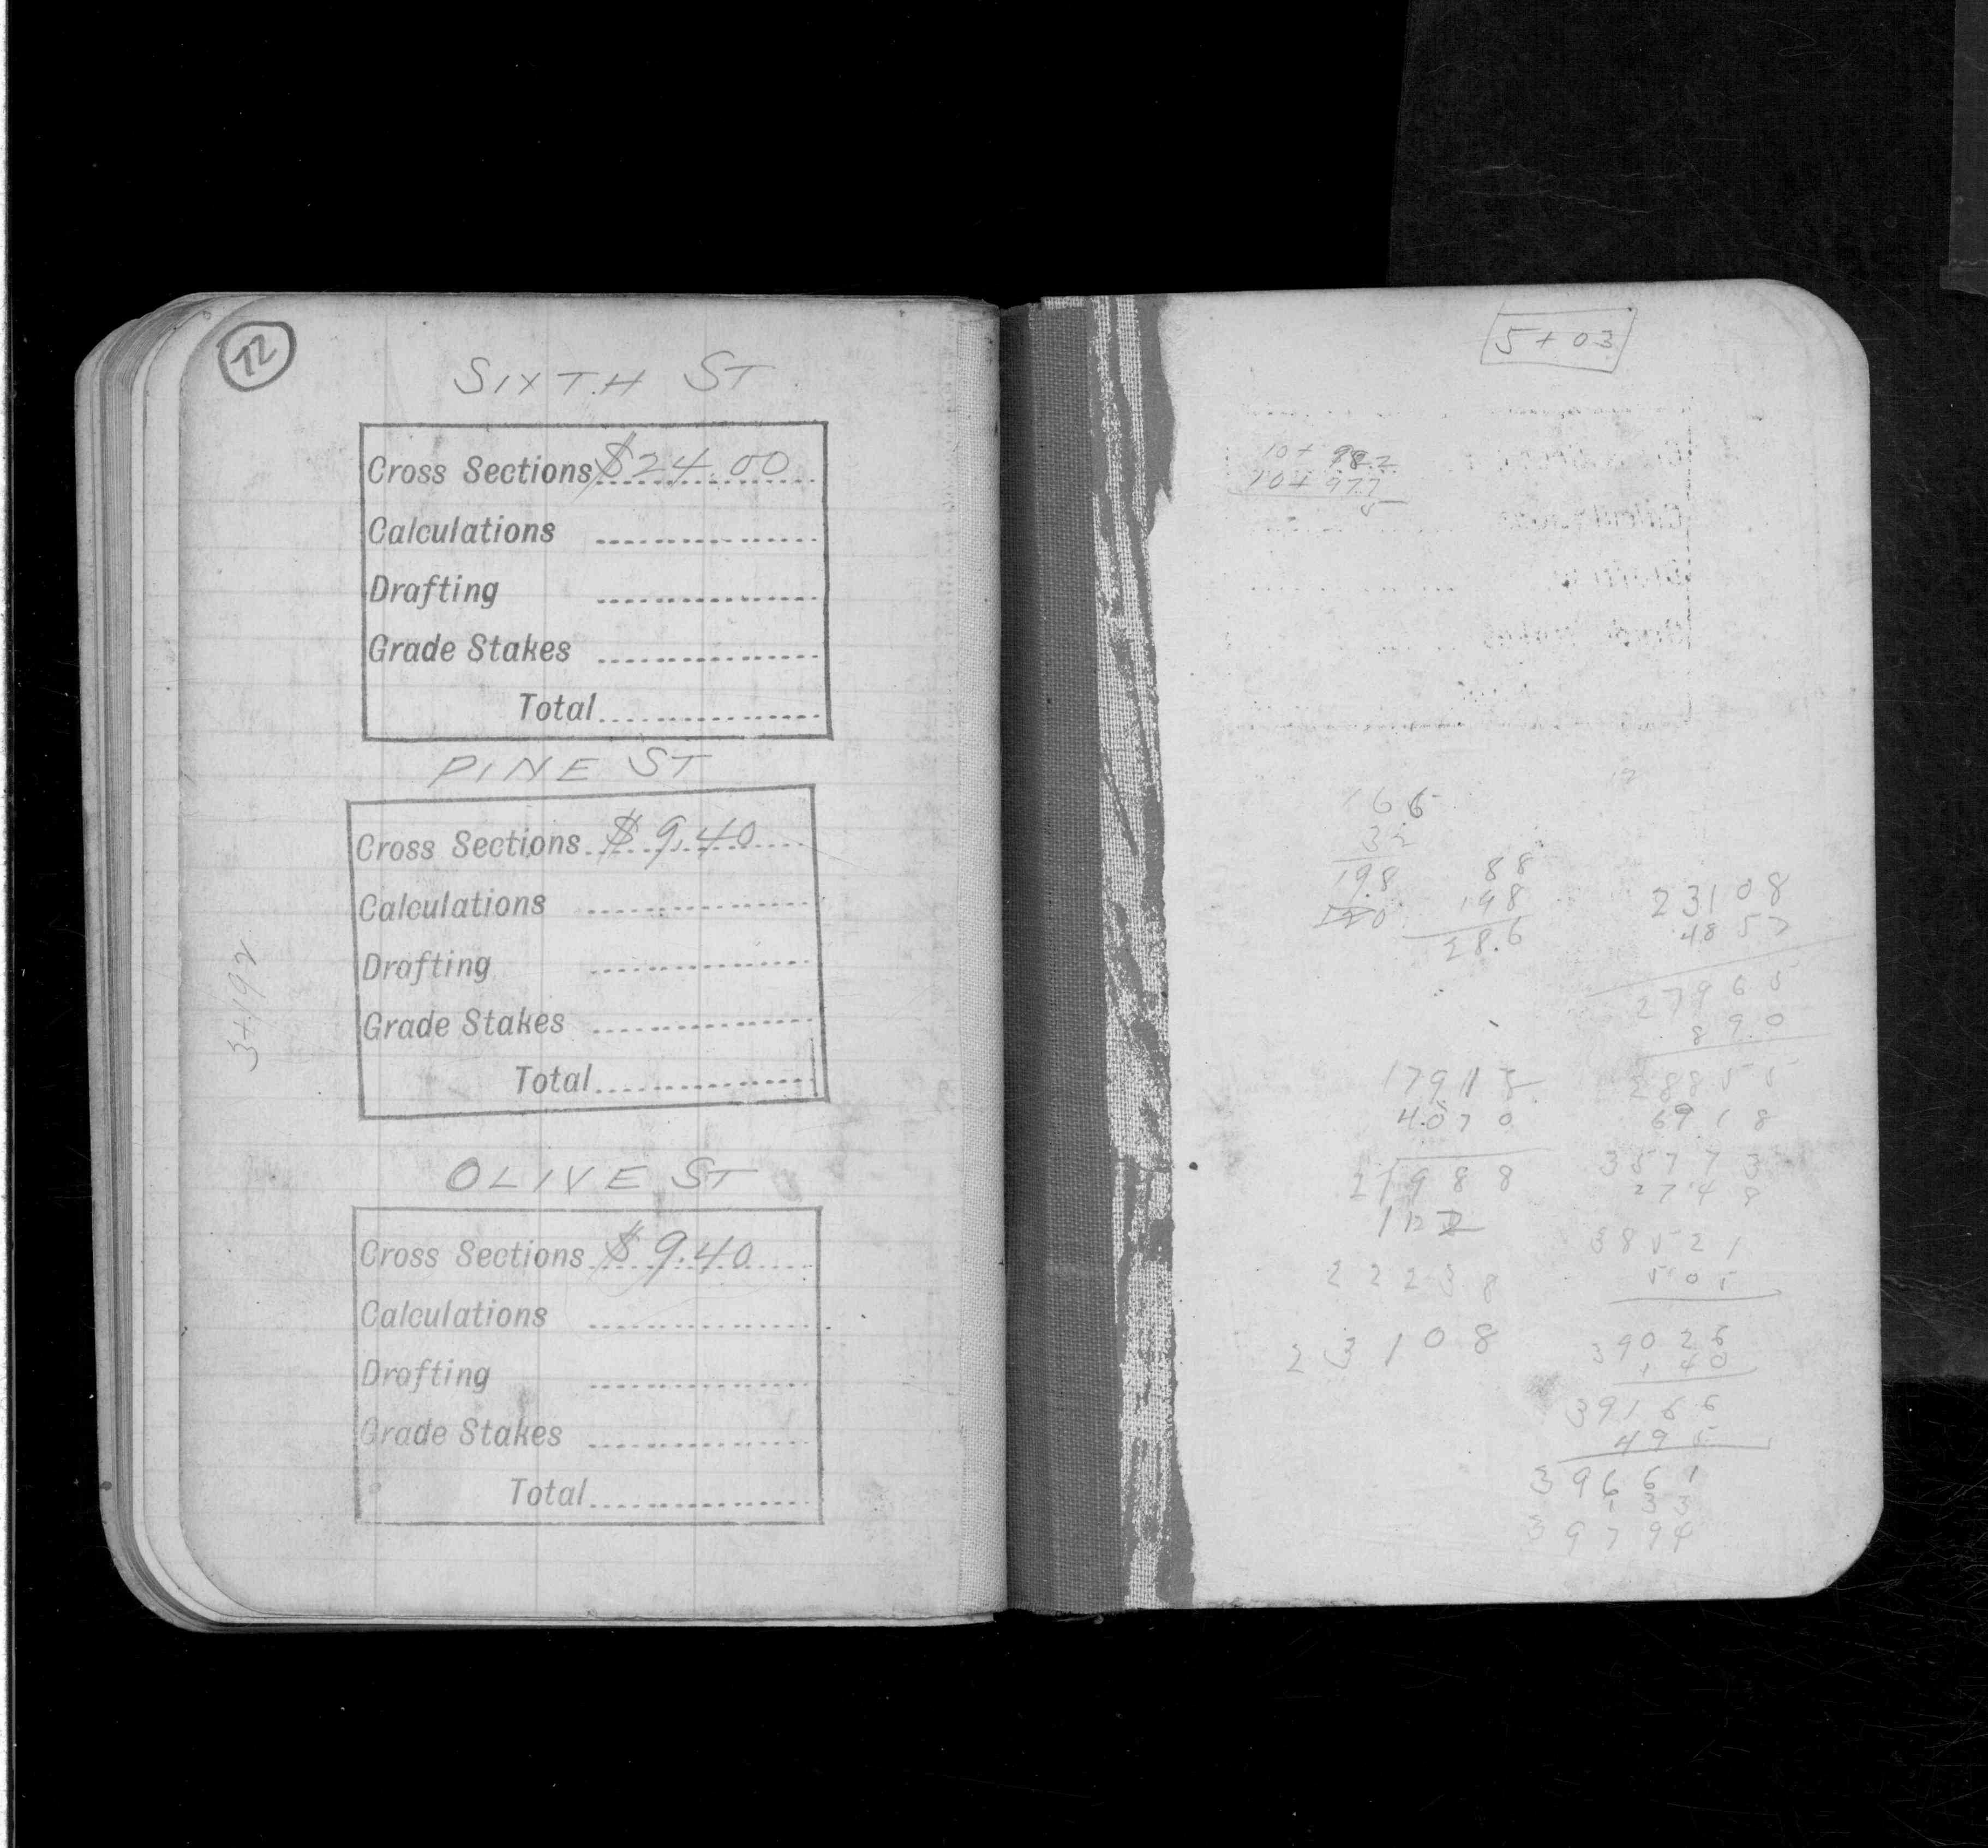 72
SIXTH ST
Cross Sections $24.00
Calculations
Drafting
Grade Stakes
Total
PINE ST
Cross Sections $9.40
Calculations
Drafting
Grade Stakes
Total
OLIVE ST
Cross Sections $9.40
Calculations
Drafting
Grade Stakes
Total
5+03
10+98.2
10+97.7
5
198
88
198
28.6
23108
4857
27965
890
28855
6918
35773
2748
38521
505
39026
140
39166
495
39661
133
39794
4070
2
988
22238
23108